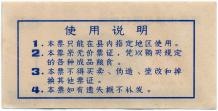 使用说明
1.本票只能在县内指定地区使用。
2.本票无价票证，凭以购买规定
的各种成品粮食。
3.本票不得买卖、伪造、涂改和掉
换其他票证。
4.本票如有遗失概不补发。